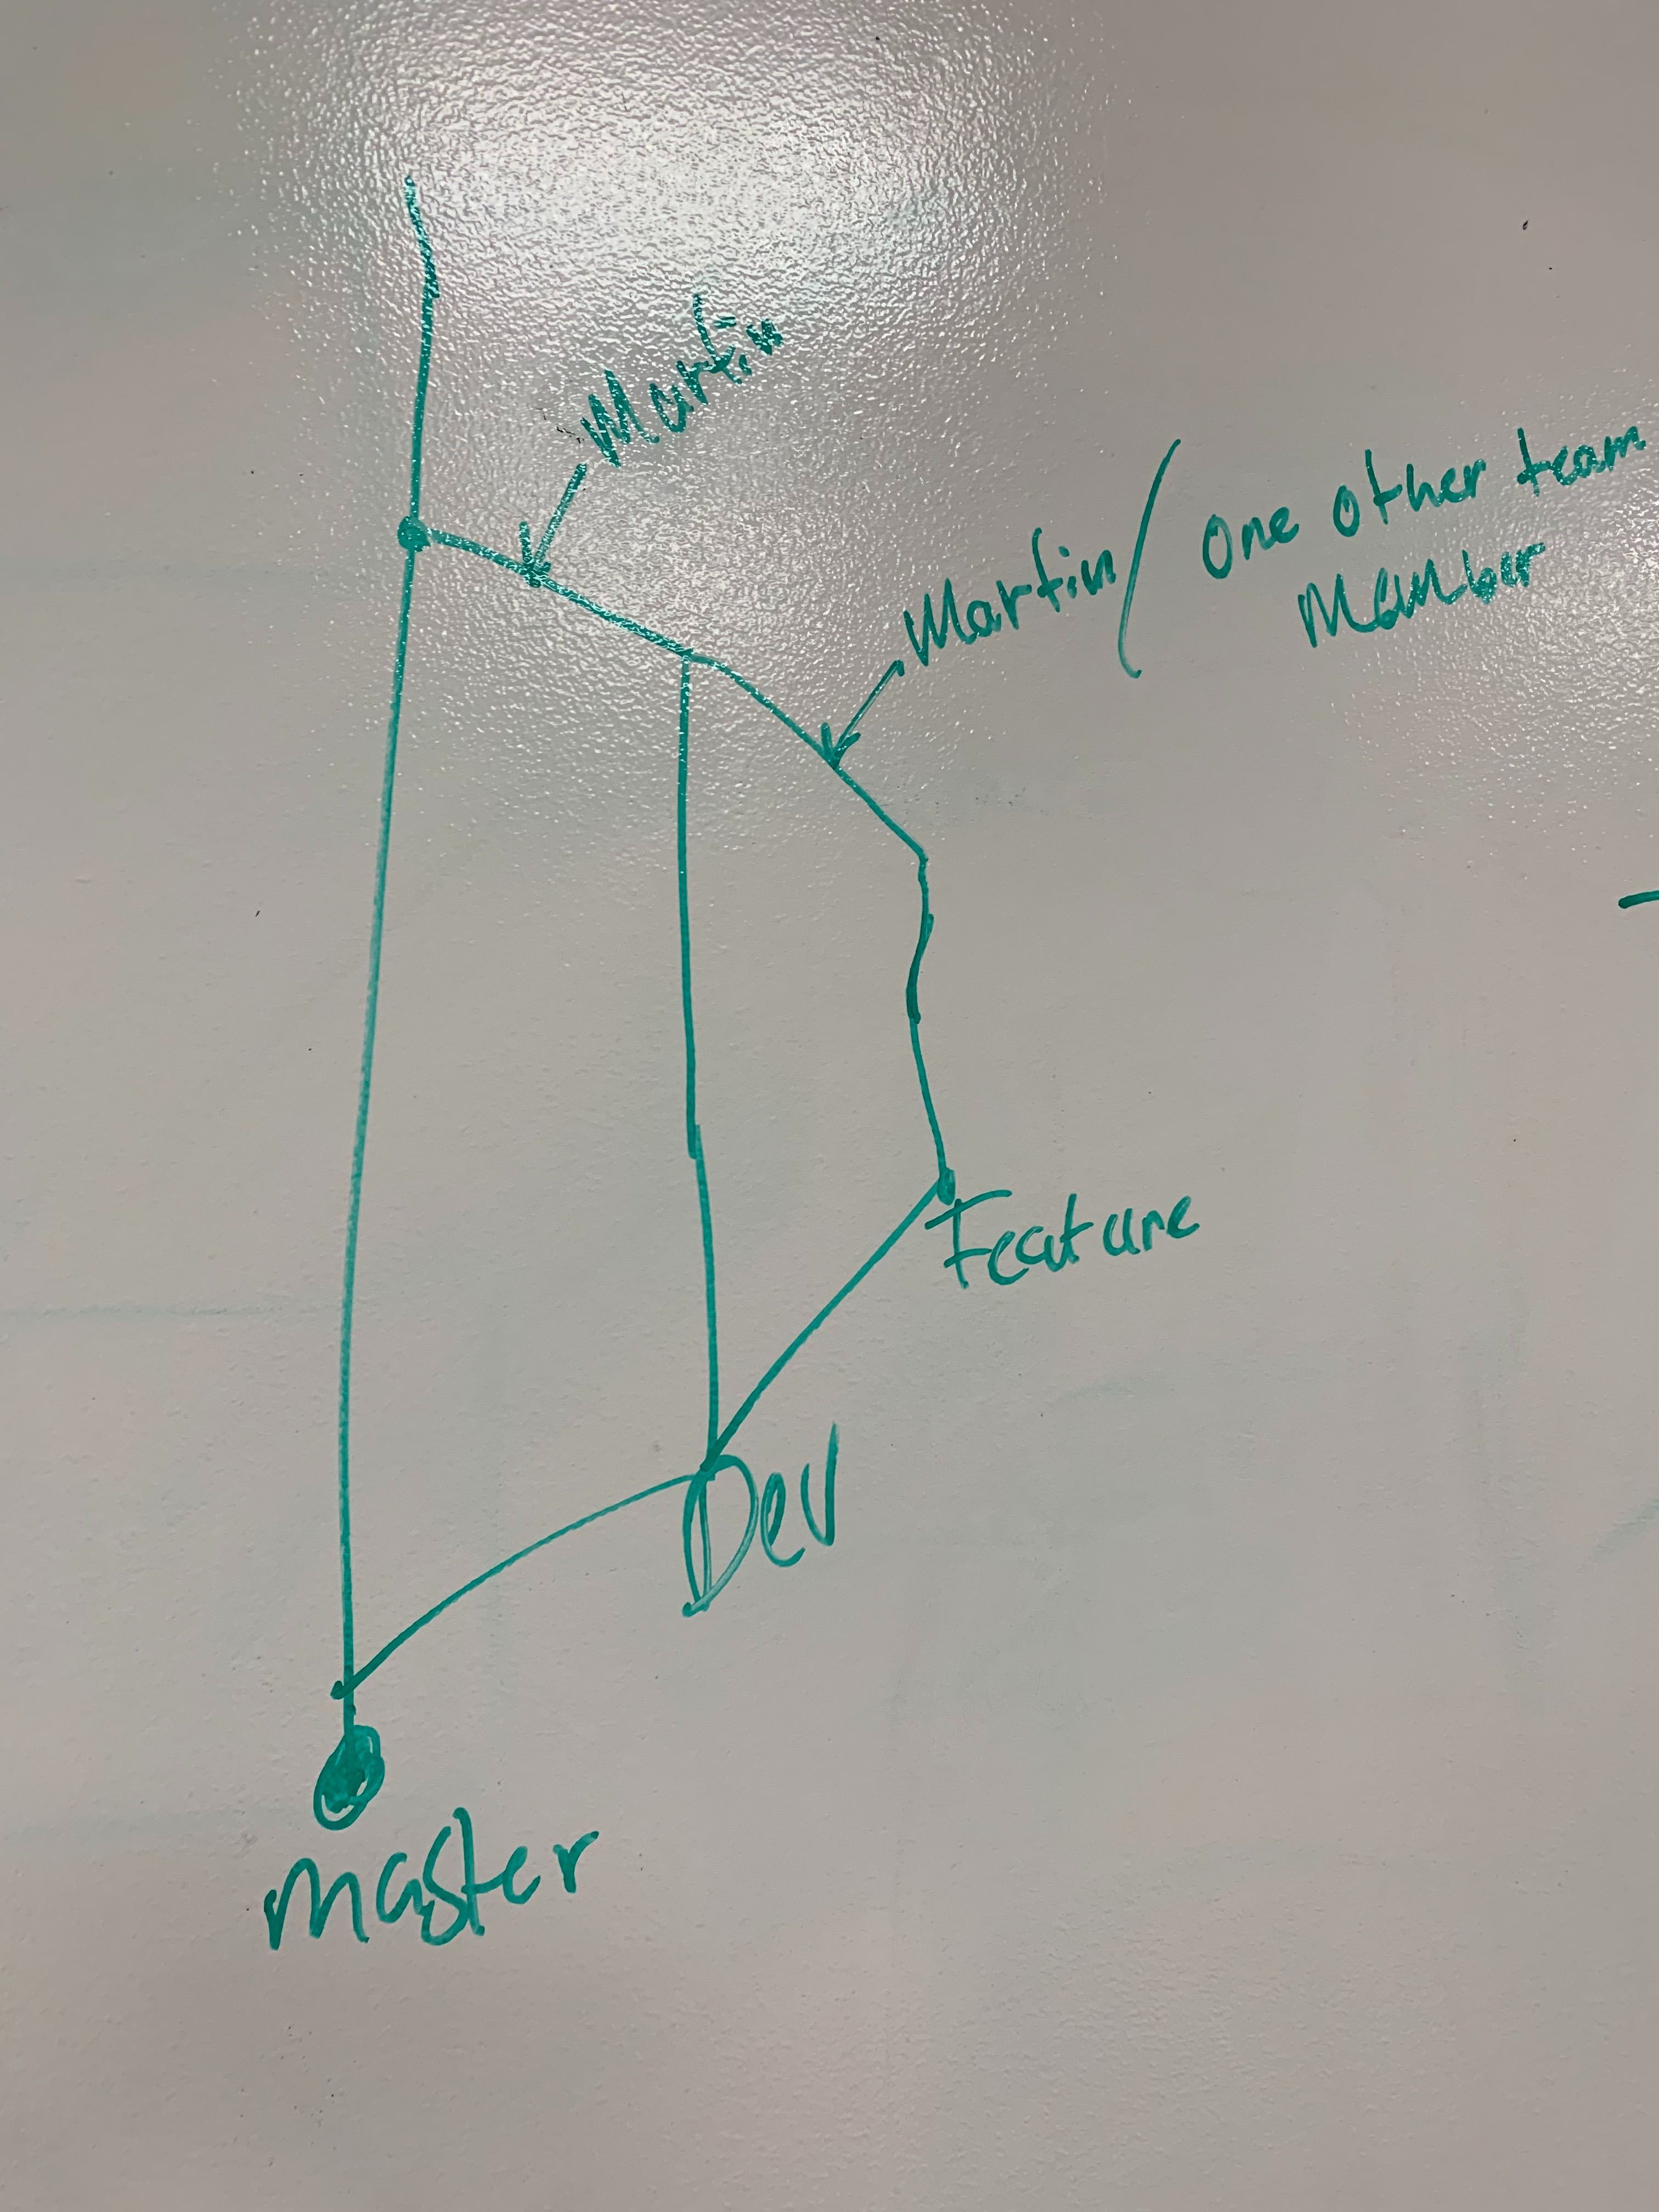 Martin
Martin / One other team
Member
Feature
Dev
Master